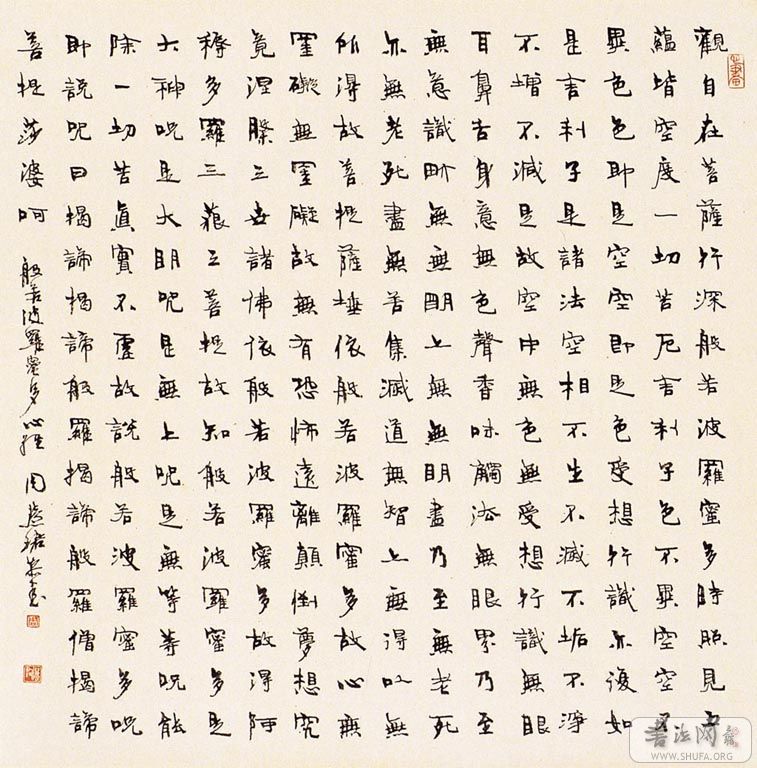 觀自在菩薩行深般若波羅蜜多時照見五
蘊皆空度一切苦厄舍利子色不異空空不
異色色即是空空即是色受想行識亦復如
是舍利子是諸法空相不生不滅不垢不淨
不增不減是故空中無色無受想行識無眼
耳鼻舌身意無色聲香味觸法無眼界乃至
無意識界無無明亦無無明盡乃至無老死
亦無老死盡無苦集滅道無智亦無得以無
所得故菩提薩埵依般若波羅蜜多故心無
罣礙無罣礙故無有恐怖遠離顛倒夢想究
竟涅槃三世諸佛依般若波羅蜜多故得阿
耨多羅三藐三菩提故知般若波羅蜜多是
大神呪是大明呪是無上呪是無等等呪能
除一切苦真實不虛故說般若波羅蜜多呪
即說呪曰揭諦揭諦般羅揭諦般羅僧揭諦
菩提莎婆呵 般若波羅蜜多心經 周慧珺恭書
書法网
WWW.SHUFA.ORG